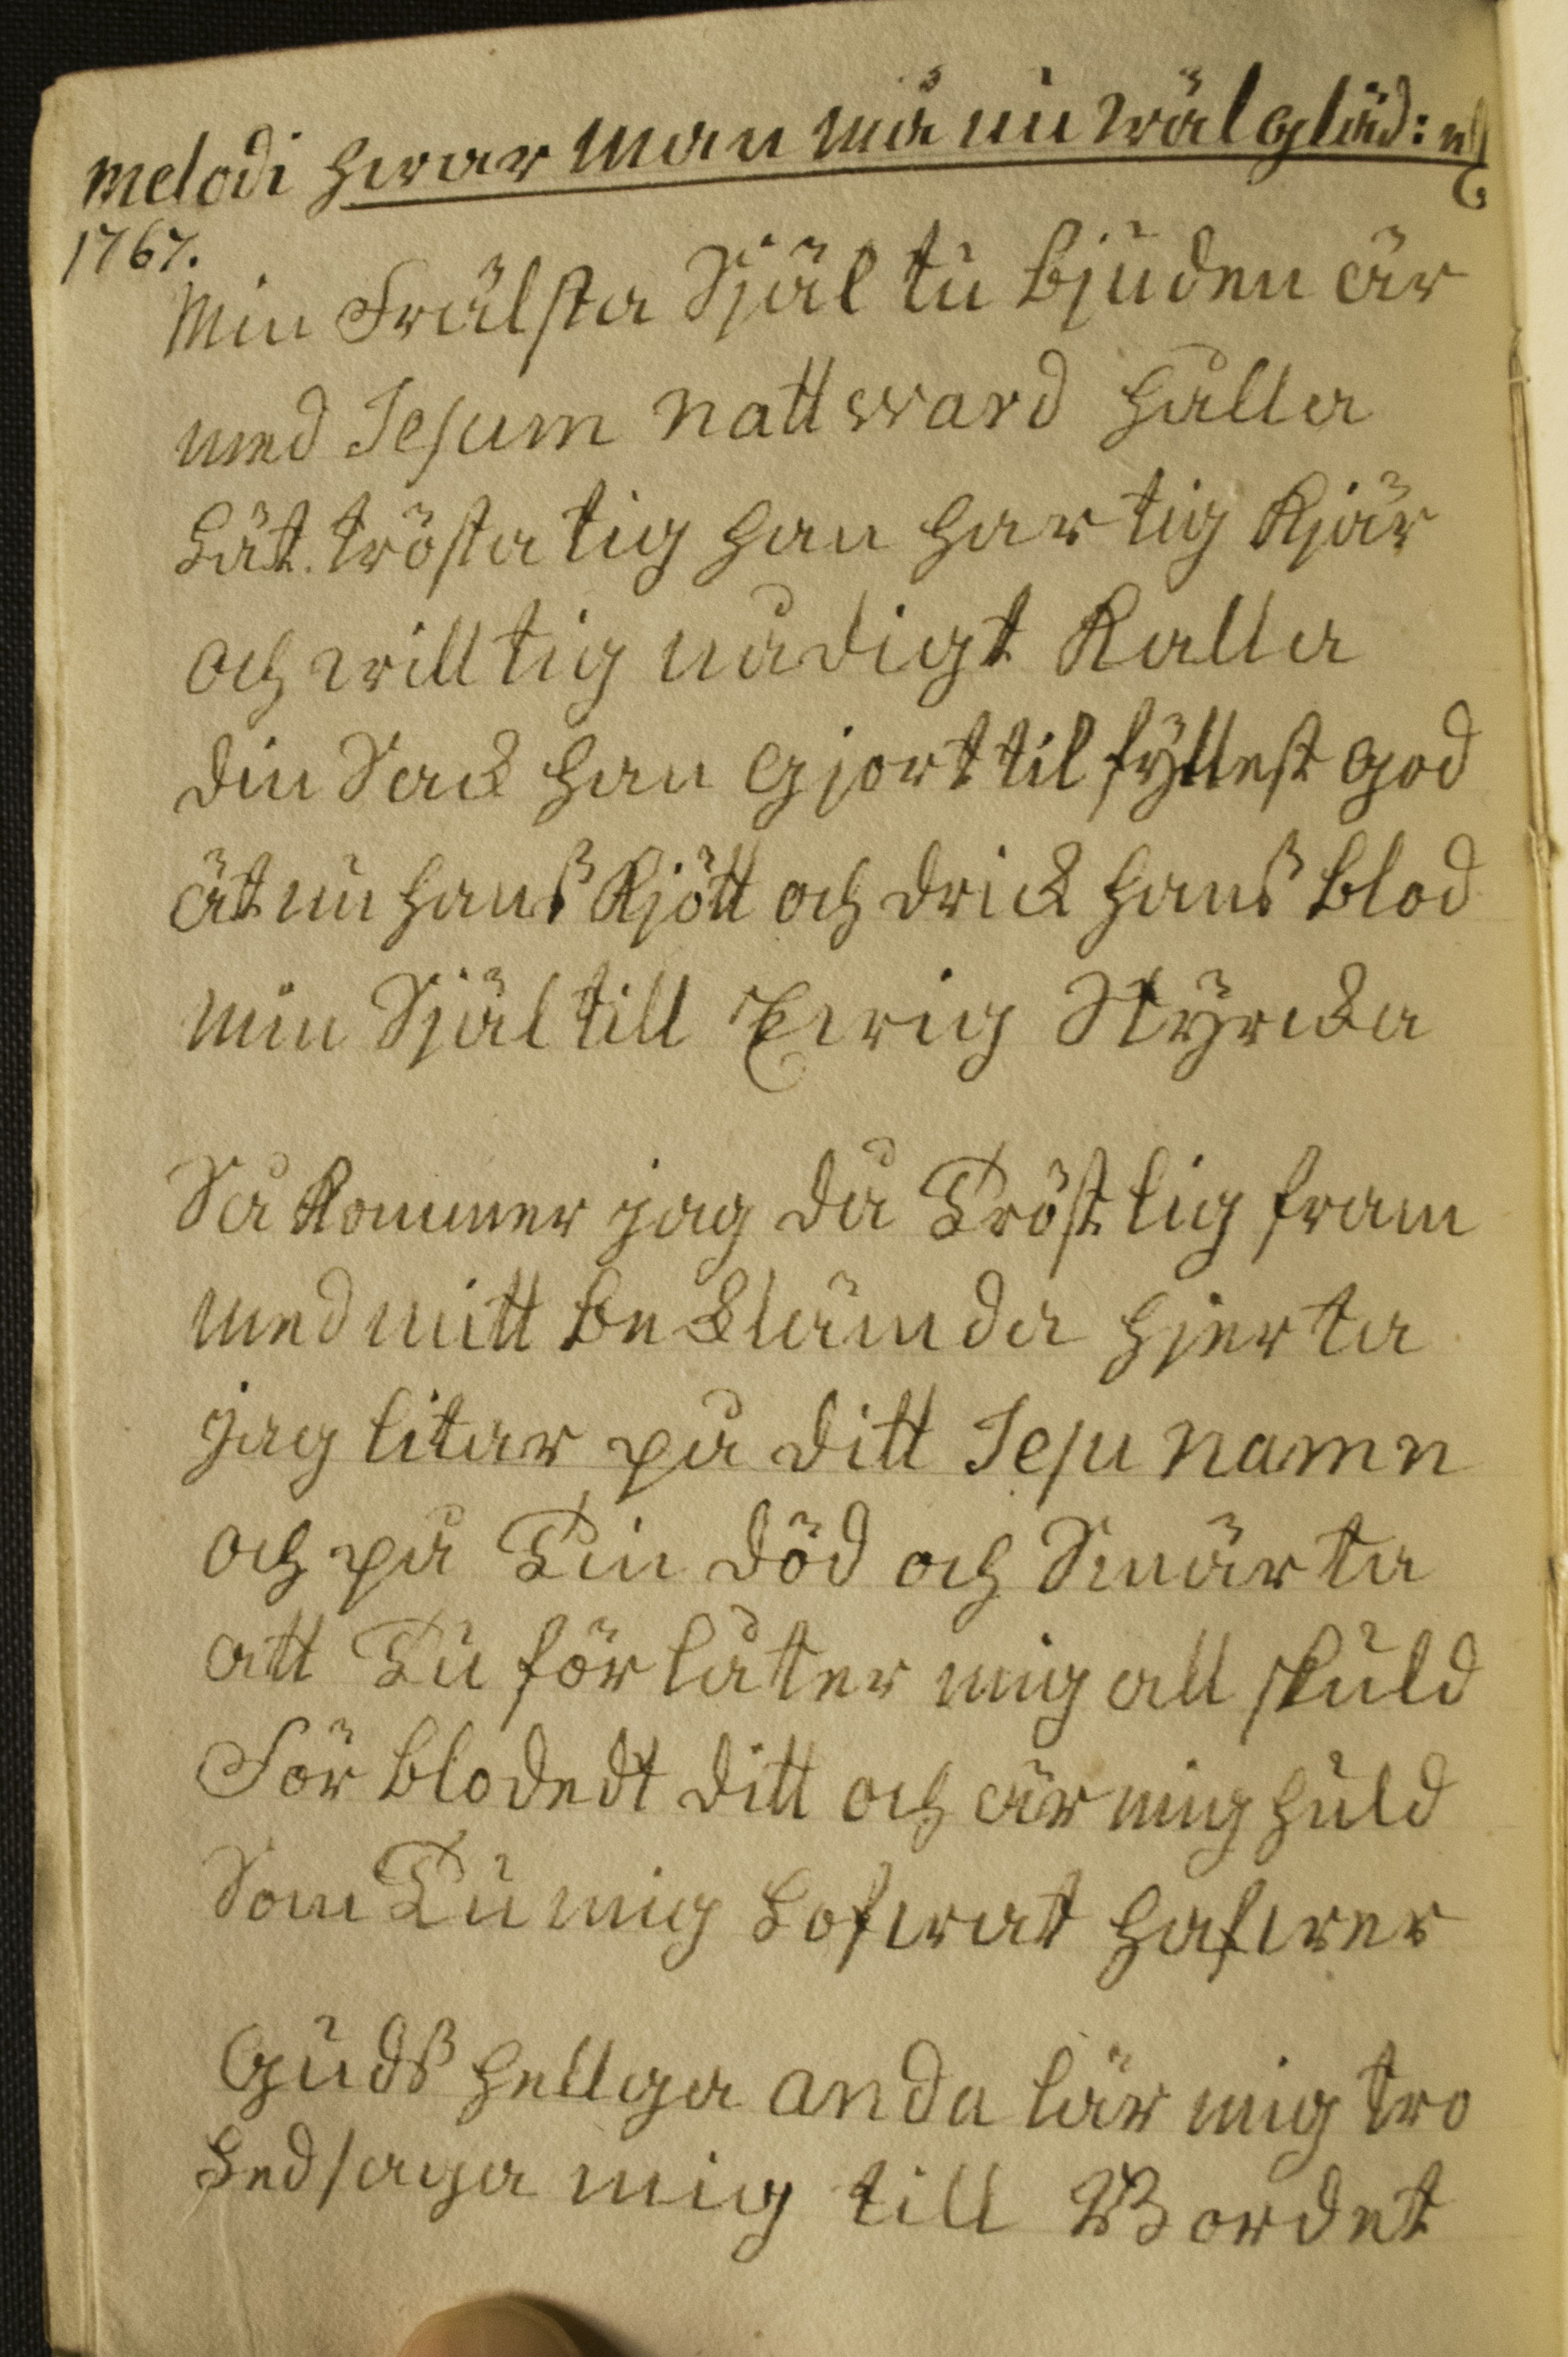 Melodi hwar man må nu wäl gläd: etc
1767.
Min Frälsta Själ tu bjuden är
med Jesum nattward hålla
Låt trösta tig han har tig kjär
och will tig nådigt kalla
din Sack han gjort til fyllest god
ät nu hans kjött och drick hans blod
min Själ till Ewig Styrcka
Så kommer jag då Tröstlig fram
med mitt beklämda hjerta
jag litar på ditt Jesu namn
och på Din död och Smärta
att Du förlåter mig all skuld
För blodedt ditt och är mig huld
Som Du mig Lofwat hafwer
Guds hellga anda lär mig tro
Ledsaga mig till Bordet